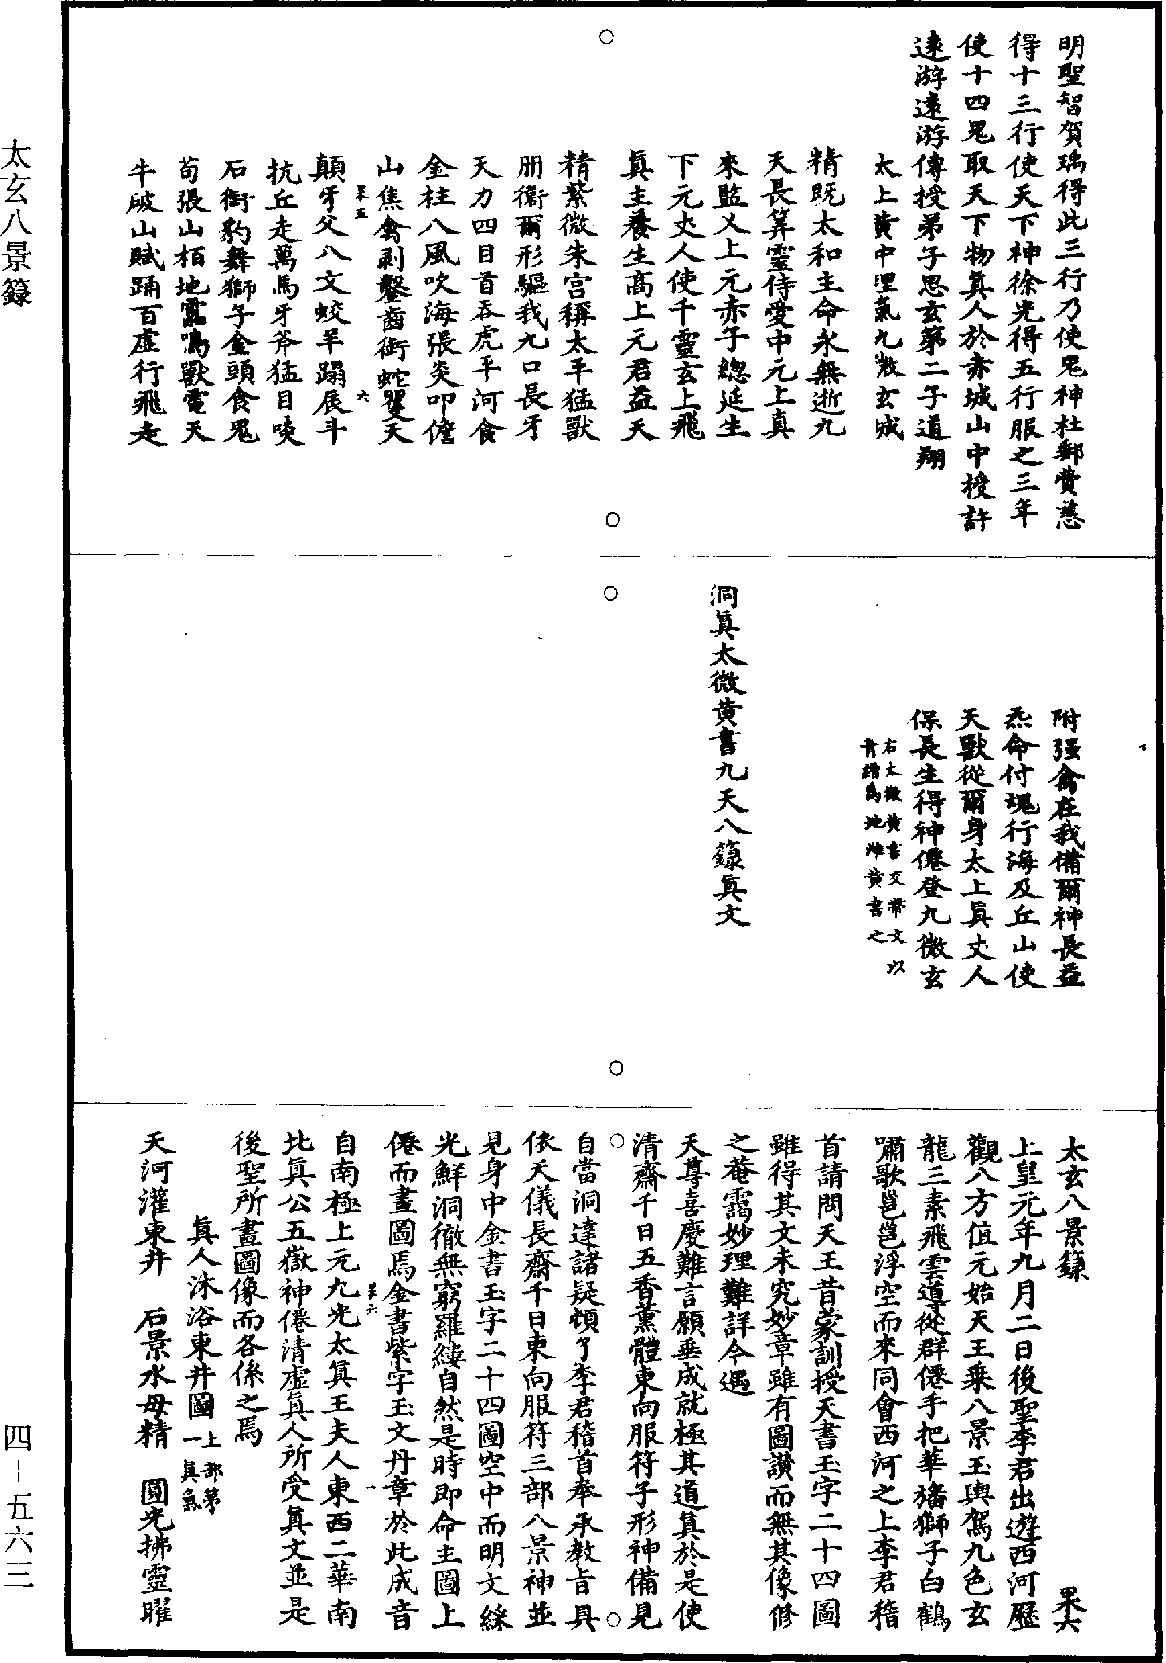 明聖智賀瑀得此三行乃使鬼神杜郵費慈
得十三行使天下神徐光得五行服之三年
使十四鬼取天下物真人於赤城山中授許
遠游遠游傳授弟子思玄第二子道翔
太上黄中理氣九微玄戒
精既太和主命永無逝九
天長筭靈侍愛中元上真
來監乂上元赤子總延生
下元丈人使千靈玄上飛
真主養生高上元君益天
精紫微朱宮稱太平猛獸
朋衛爾形驅我九口長牙
天力四目首吞虎平河食
金柱八風吹海張炎叩儋
山焦禽剥鑿齒銜蛇嬰天
菓五 六
顛牙父八文蛟羊蹋展斗
抗丘走萬馬牙斧猛目㗛
石銜豹舞獅子金頭食鬼
苟張山栢地靁鳴獸電天
牛破山賦踊百虚行飛走
附强禽在我備爾神長益
炁命付魂行海及丘山使
天獸從爾身太上真丈人
保長生得神僊登九微玄
右太微黄書交帶文以
青繒爲地雌黄書之
洞真太微黄書九天八籙真文
太玄八景籙 菓六
上皇元年九月二日後聖李君出遊西河歷
觀八方值元始天王乗八景玉輿駕九色玄
龍三素飛雲導從群僊手把華旛獅子白鶴
嘯歌邕邕浮空而來同會西河之上李君稽
首請問天王昔蒙訓授天書玉字二十四圖
雖得其文未究妙章雖有圖讃而無其像修
之菴靄妙理難詳今遇
天尊喜慶難言願垂成就極其道真於是使
清齋千日五香薰體東向服符子形神備見
自當洞達諸疑頓了李君稽首奉承教旨具
依天儀長齋千日東向服符三部八景神並
見身中金書玉字二十四圖空中而明文綵
光鮮洞徹無窮羅縷自然是時即命主圖上
僊而畫圖焉金書紫字玉文丹章於此成音
菓六 一
自南極上元九光太真王夫人東西二華南
北真公五嶽神僊清虚真人所受真文並是
後聖所畫圖像而各係之焉
真人沐浴東井圖 上部第一真氣
天河灌東井 石景水母精 圓光拂靈曜
太玄八景籙
四-五六三